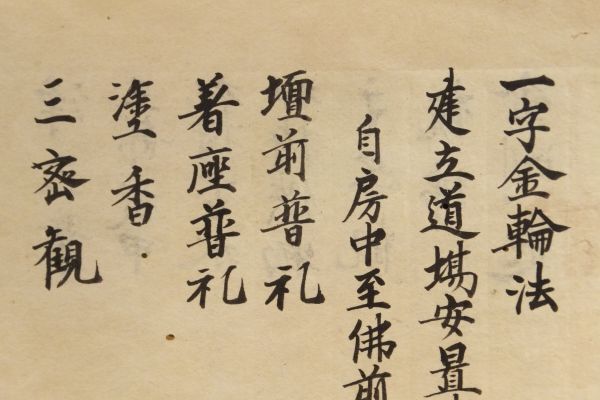 一字金輪法
建立道場安置
自房中至佛前
壇前普礼
着座普礼
塗香
三密観